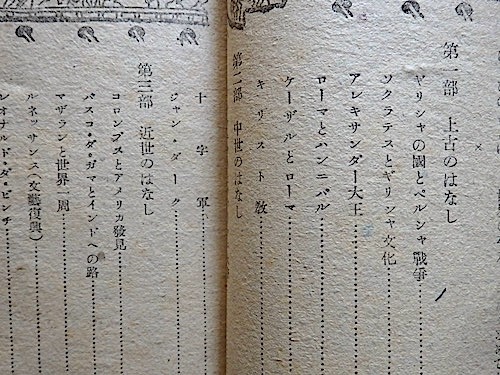 第一部 上古のはなし
ギリシャの國とペルシャ戰爭
ソクラテスとギリシャ文化
アレキサンダー大王
ローマとハンニバル
ケーザルとローマ
キリスト教
第二部 中世のはなし
十字軍
ジャン・ダーク
第三部 近世のはなし
コロンブスとアメリカ發見
バスコ・ダ・ガマとインドへの路
マゼランと世界一周
ルネッサンス(文藝復興)
レオナルド・ダ・ビンチ